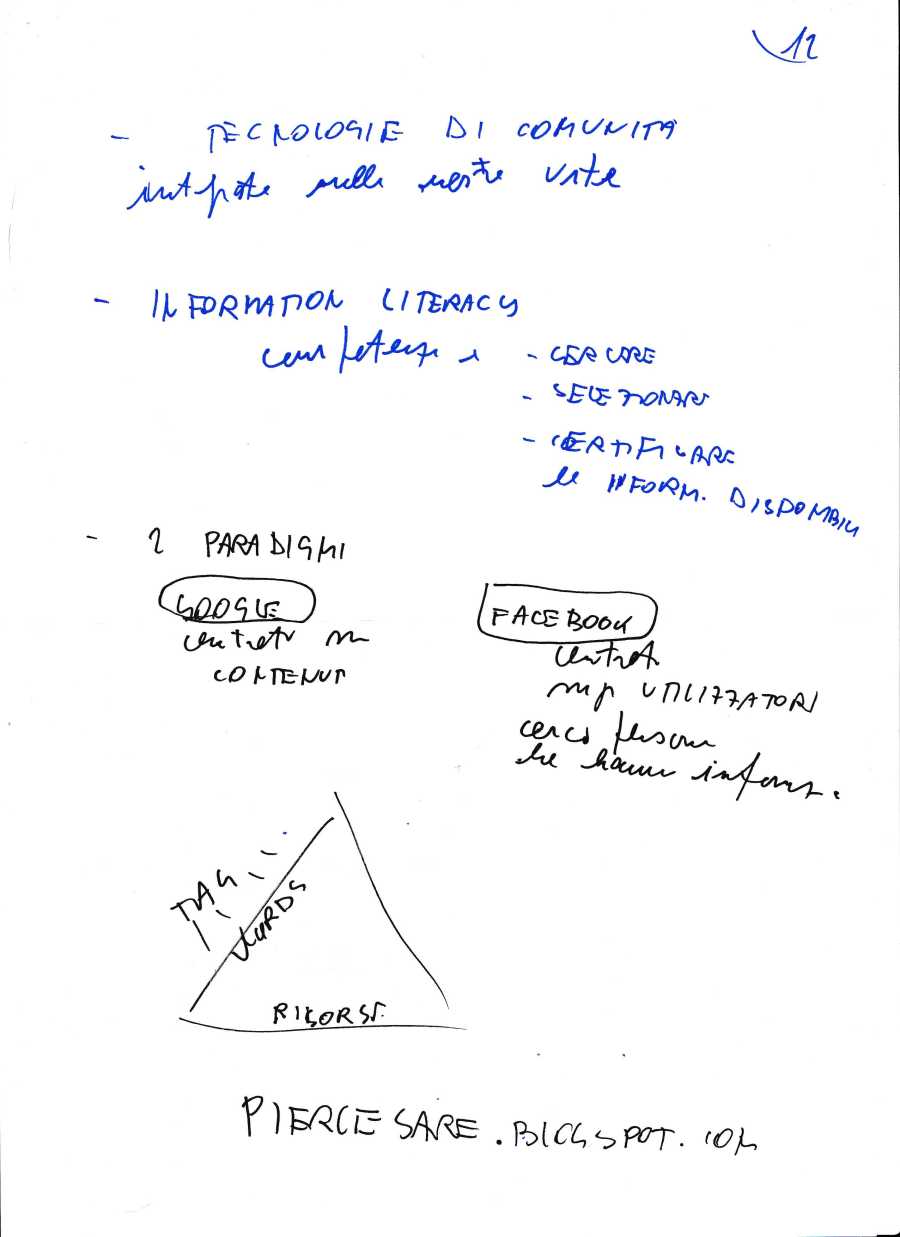 12
- TECNOLOGIE DI COMUNITÀ
integrate nelle nostre vite
- INFORMATION LITERACY
competenze
- CERCARE
- SELEZIONARE
- CERTIFICARE
le INFORM. DISPONIBILI
- 2 PARADIGMI
GOOGLE
centrato su
CONTENUTI
FACEBOOK
centrato
sugli UTILIZZATORI
cerco persone
che hanno inform.
TAG
WORDS
RISORSE
PIERCESARE.BLOGSPOT.COM